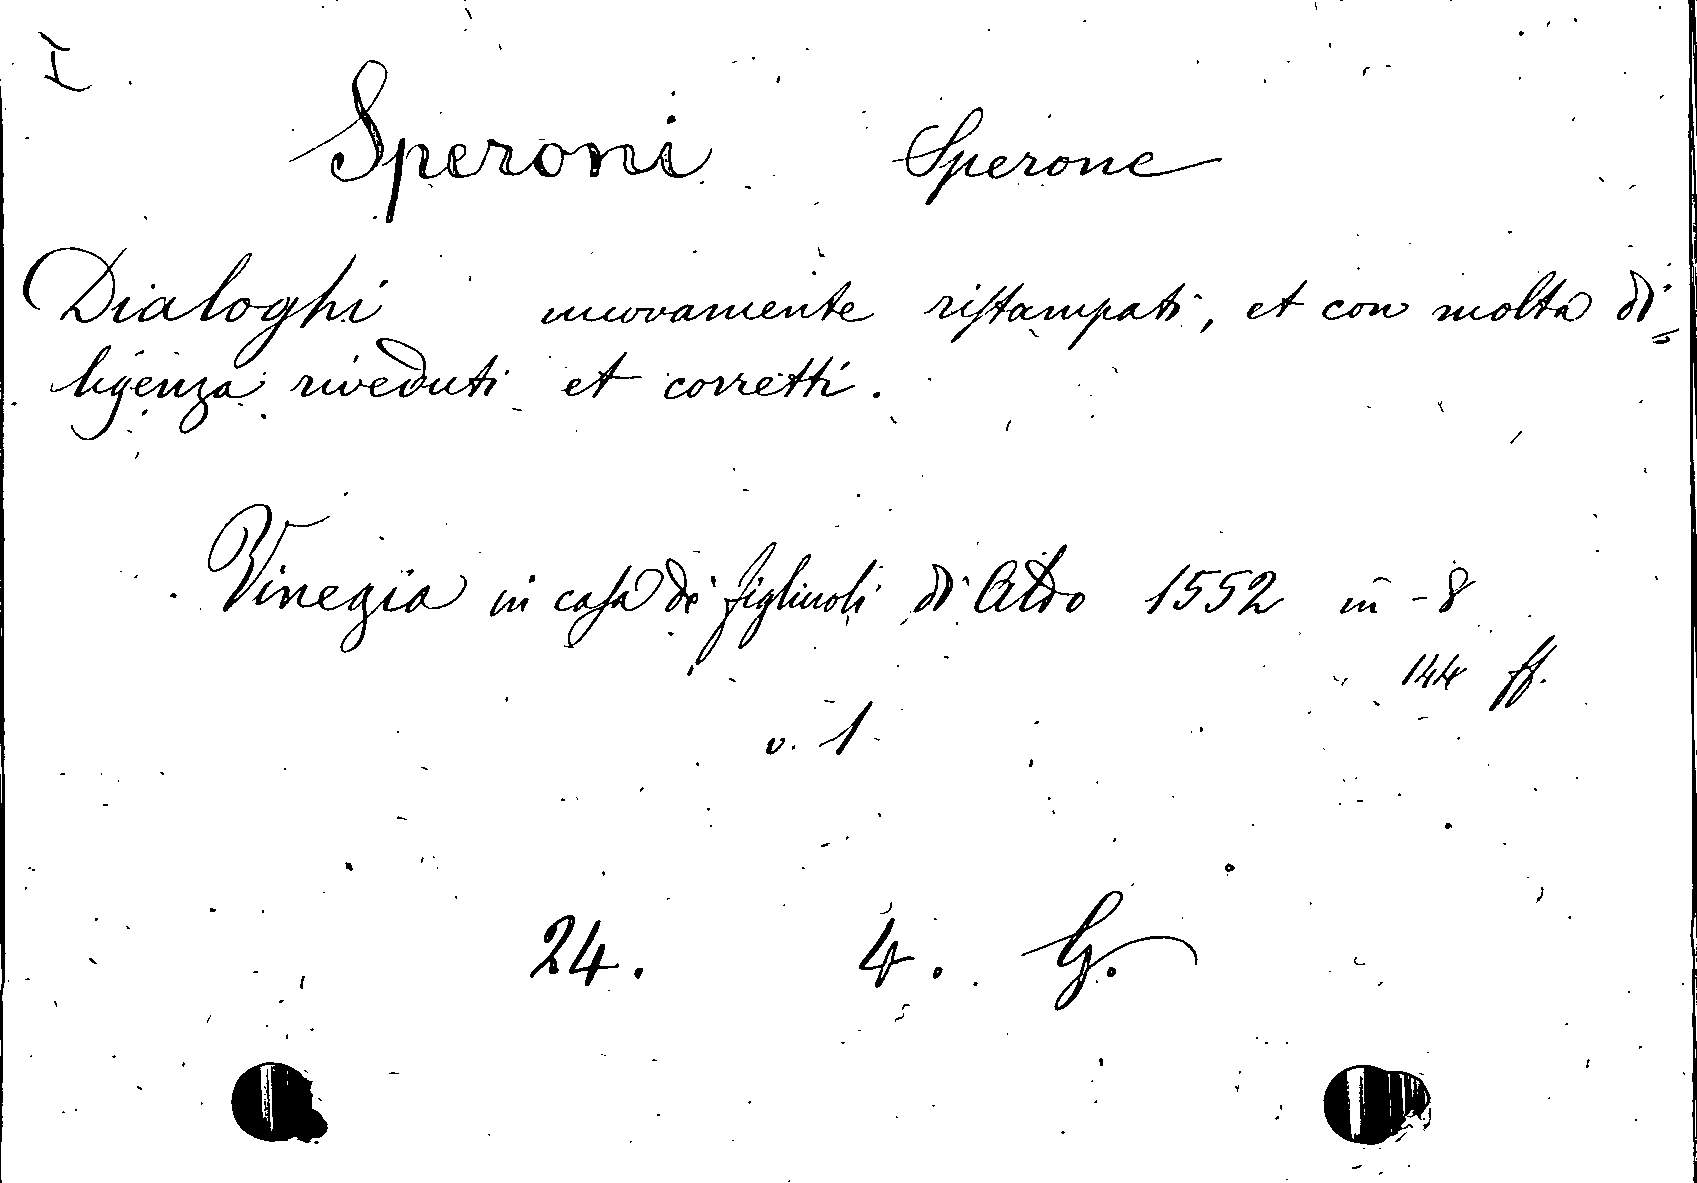 I
Speroni Sperone
Dialoghi nuovamente ristampati, et con molta di=
ligenza riveduti et corretti.
Vinegia in casa de' figliuoli di Aldo 1552 in -8
144 ff.
v. 1
24. 4. G.